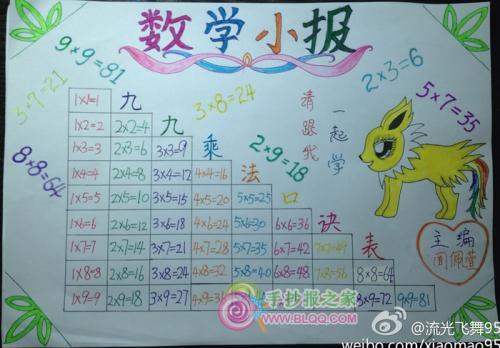 数学小报
9×9=81
3×7=21
3×8=24
2×3=6
5×7=35
8×8=64
2×9=18
九九乘法口诀表
请跟我
一起学
1×1=1
1×2=2 2×2=4
1×3=3 2×3=6 3×3=9
1×4=4 2×4=8 3×4=12 4×4=16
1×5=5 2×5=10 3×5=15 4×5=20 5×5=25
1×6=6 2×6=12 3×6=18 4×6=24 5×6=30 6×6=36
1×7=7 2×7=14 3×7=21 4×7=28 5×7=35 6×7=42 7×7=49
1×8=8 2×8=16 3×8=24 4×8=32 5×8=40 6×8=48 7×8=56 8×8=64
1×9=9 2×9=18 3×9=27 4×9=36 8×9=72 9×9=81
主编
手抄报之家
WWW.BLQQ.COM
@流光飞舞95
weibo.com/xiaomao95